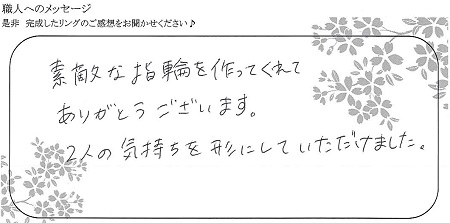 職人へのメッセージ
是非 完成したリングのご感想をお聞かせください♪
素敵な指輪を作ってくれて
ありがとうございます。
2人の気持ちを形にしていただけました。